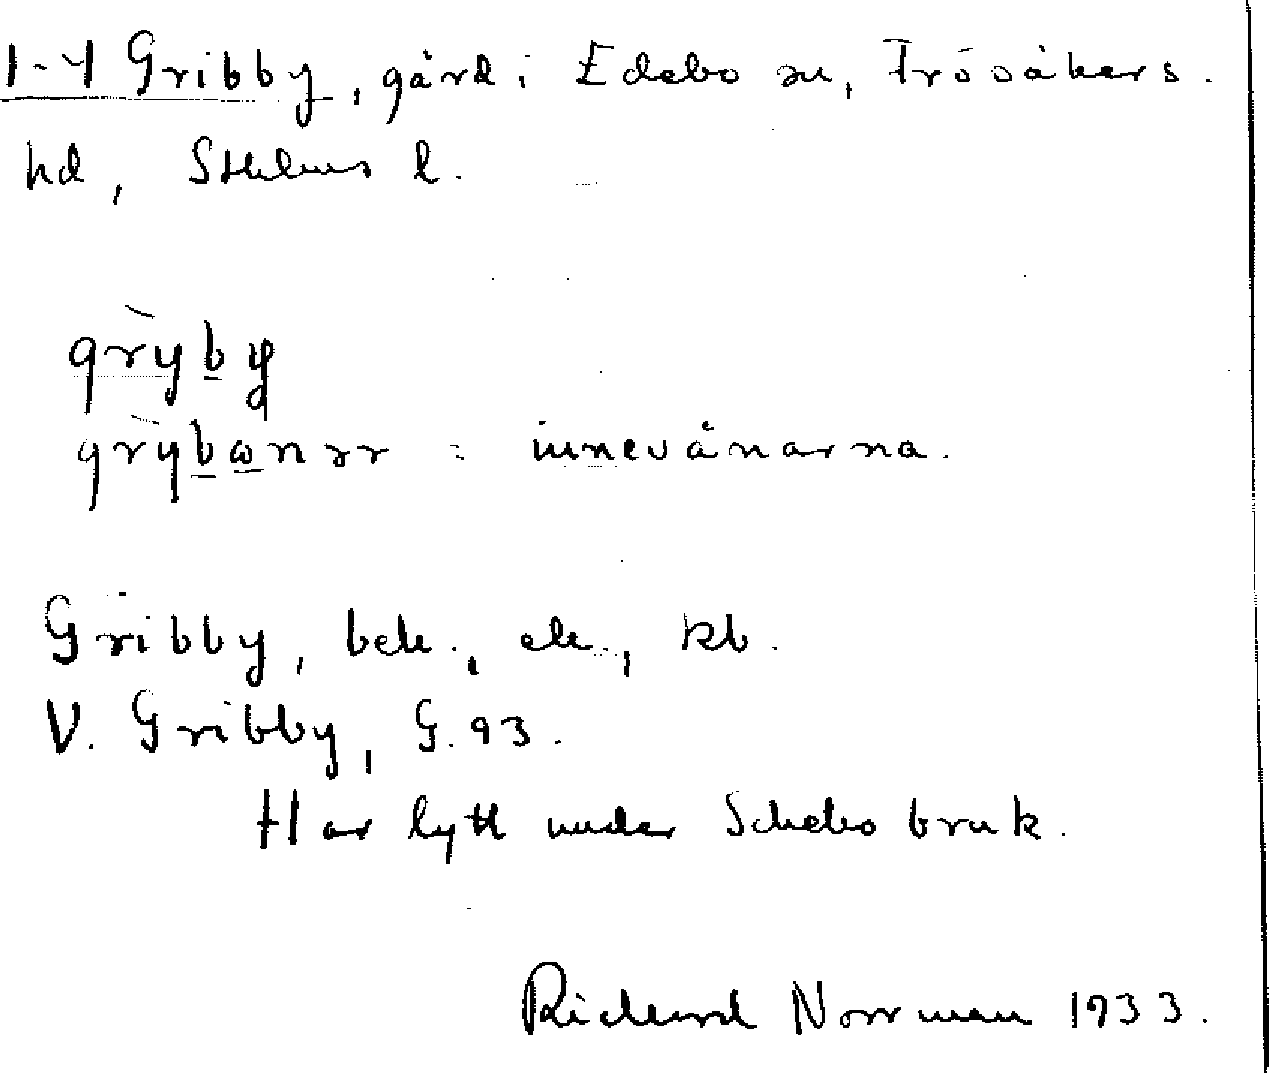 1-4 Gribby, gård i Edebo sn, Frösåkers
hd, Sthlms l.
gryby
grybanar = innevånarna.
Gribby, bek., ek., kb.
V. Gribby, G. 93.
Har lytt under Schebo bruk.
Rickard Norrman 1933.